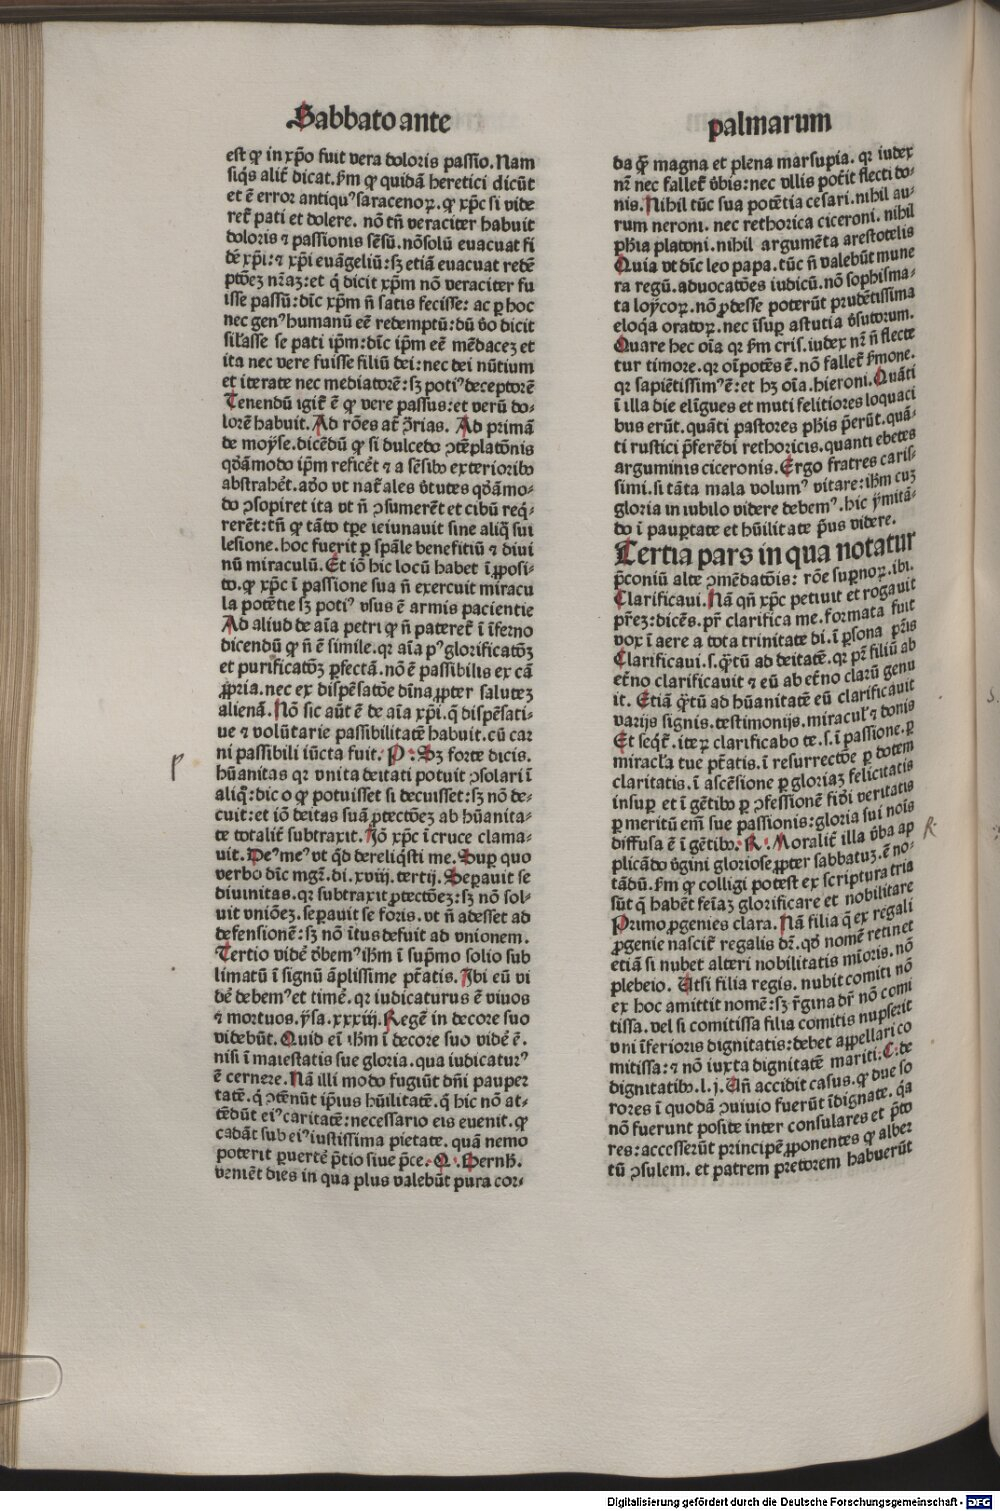 Sabbato ante
est ꝙ in xp̄o fuit vera doloris passio. Nam
siq̄s alit̄ dicat. ẜm ꝙ quidā heretici dicūt
et ē error antiquꝰ sarracenoꝝ. ꝙ xp̄c si vide
ret̄ pati et dolere. nō tn̄ veraciter habuit
doloris ⁊ passionis sēsū. nōsolū euacuat fi
dē xp̄i: ⁊ xp̄i euāgeliū: sꝫ etiā euacuat redē
ptōeꝫ nr̄aꝫ: et q̇ dicit xp̄m nō veraciter fu
isse passū: dīc xp̄m n̄ satis fecisse: ac ꝑ hoc
nec genꝰ humanū eē redemptū: dū v̄o dicit
sil̄asse se pati ip̄m: dīc ip̄m eē mēdaceꝫ et
ita nec vere fuisse filiū dei: nec dei nūtium
et iterate nec mediatorē: sꝫ potiꝰ deceptorē
Tenendū igit̄ ē ꝙ vere passus: et verū do-
lorē habuit. Ad rōes at̄ ꝯ̄rias. Ad primā
de moyse. dicēdū ꝙ si dulcedo ꝯtēplatōnis
qͦdāmodo ip̄m reficēt ⁊ a sēsibꝫ exterioribꝫ
abstrahēt. adͦo vt nat̄ales v̄tutes qͦdāmo-
do ꝯsopiret ita vt n̄ ꝯsumerēt et cibū req̇-
rerēt: tn̄ ꝙ tāto tꝑe ieiunauit sine aliq̄ sui
lesione. hoc fuerit ꝑ sp̄ale benefitiū ⁊ diui
nū miraculū. Et iō hic locū habet ī ꝓposi-
to. ꝙ xp̄c ī passione sua n̄ exercuit miracu
la potētie sꝫ potiꝰ vsus ē armis pacientie
Ad aliud de aīa petri ꝙ n̄ pateret̄ ī īferno
dicendū ꝙ n̄ ē simile. qr aīa pꝰ glorificatōꝫ
et purificatōꝫ perfectā. nō ē passibilis ex cā
ꝓpria. nec ex dispēsatōe dīna ꝓpter saluteꝫ
alienā. Nō sic aūt ē de aīa xp̄i. q̄ dispēsati-
ue ⁊ volūtarie passibilitatē habuit. cū car
ni passibili iūcta fuit. P. Sꝫ forte dicis.
hūanitas qr vnita deitati potuit ꝯsolari ī
aliq̄: dic o ꝙ potuisset si decuisset: sꝫ nō de-
cuit: et iō deitas suā ꝓtectōeꝫ ab hūanita-
te totalit̄ subtraxit. Iō xp̄c ī cruce clama-
uit. Deꝰ meꝰ vt qͥd dereliq̇sti me. Supꝑ quo
verbo dīc mgr̄. di. xviij. tertij. Seperauit se
diuinitas. qr subtraxit ꝓtectōeꝫ: sꝫ nō sol-
uit vniōeꝫ. seperauit se foris. vt n̄ adesset ad
defensionē: sꝫ nō ītus defuit ad vnionem.
Tertio vidē d̄bemꝰ ih̄m ī sup̄mo solio sub
limatū ī signū āplissime pt̄atis. Ibi eū vi
dē debemꝰ et timē. qr iudicaturus ē viuos
⁊ mortuos. ysa. xxxiij. Regē in decore suo
videbūt. Quid ei ih̄m ī decore suo vidē ē.
nisi ī maiestatis sue gloria. qua iudicaturꝰ
ē cernere. Nā illi modo fugiūt dn̄i pauper
tatē. q̇ ꝯtēnūt ip̄ius hūilitatē. q̇ hic nō at-
tēdūt eiꝰ caritatē: necessario eis euenit. ꝙ
cadāt sub eiꝰ iustissima pietate. quā nemo
poterit ꝑuertē p̄tio siue p̄ce. Q. Bernh̄.
veniēt dies in qua plus valebūt pura cor-
palmarum
da q̄ꝫ magna et plena marsupia. qr iudex
nr̄ nec fallet̄ v̄bis: nec vllis pot̄it flecti do-
nis. Nihil tūc sua potētia cesari. nihil au-
rum neroni. nec rethorica ciceroni. nihil
ph̄ia platoni. nihil argumēta arestotelis
Quia vt dīc leo papa. tūc n̄ valebūt mune
ra regū. aduocatōes iudicū. nō sophisma-
ta loycoꝝ. nō ꝓdesse poterūt prudētissima
eloq̄a oratoꝝ. nec īsuꝑ astutia v̄sutorum.
Quare hec oīa qr ẜm cris. iudex nr̄ n̄ flecte
tur timore. qr oīpotēs ē. nō fallet̄ ẜmone.
qr sapiētissimꝰ ē: et hꝫ oīa. hieroni. Quāti
ī illa die elīgues et muti felitiores loquaci
bus erūt. quāti pastores ph̄is p̄erūt. quā-
ti rustici p̄ferēdi rethoricis. quanti ebetes
arguminis ciceronis. Ergo fratres caris-
simi. si tāta mala volumꝰ vitare: ih̄m cuꝫ
gloria in iubilo videre debemꝰ. hic ymitā-
do ī paupertate et hūilitate p̄us videre.
Tertia pars in qua notatur
p̄coniū alte ꝯmēdatōis: rōe suꝑnoꝝ. ibi.
Clarificaui. Nā qn̄ xp̄c petiuit et rogauit
pr̄eꝫ: dicēs. pr̄ clarifica me. formata fuit
vox ī aere a tota trinitate di. ī ꝑsona pr̄is
Clarificaui. s. q̄ꝫtū ad deitatē. qr pr̄ filiū ab
et̄no clarificauit ⁊ eū ab et̄no clarū genu
it. Etiā q̄ꝫtū ad hūanitatē eū clarificauit
varijs signis. testimonijs. miracul̄ ⁊ donis
Et seqt̄. iteꝝ clarificabo te. s. ī passione. ꝑ
miracl̄a tue pt̄atis. ī resurrectōe ꝑ dotem
claritatis. ī ascēsione ꝑ gloriaꝫ felicitatis
insuꝑ et ī gētibꝫ ꝑ ꝯfessionē fidei veritatis
ꝑ meritū em̄ sue passionis: gloria sui nois
diffusa ē ī gētibꝫ. R. Moralit̄ illa v̄ba ap
plicādo v̄gini gloriose ꝓpter sabbatuꝫ. ē no-
tādū. ẜm ꝙ colligi potest ex scriptura tria
sūt q̄ habēt feīaꝫ glorificare et nobilitare
Primo ꝓgenies clara. Nā filia q̄ ex regali
ꝓgenie nascit̄ regalis dr̄. qͦd nomē retinet
etiā si nubet alteri nobilitatis mīoris. nō
plebeio. Etsi filia regis. nubit comiti nō
ex hoc amittit nomē: sꝫ r̄gina dr̄ nō comi
tissa. vel si comitissa filia comitis nupserit
vni īferioris dignitatis: debet appellari co
mitissa: ⁊ nō iuxta dignitatē mariti. C. de
dignitatibꝫ. l. j. Un̄ accidit casus. ꝙ due so
rores ī quodā ꝯuiuio fuerūt īdignate. q̇a
nō fuerunt posite inter consulares et p̄to
res: accesserūt principē ꝓponentes ꝙ alber
tū ꝯsulem. et patrem pretorem habuerūt
p
R.
Digitalisierung gefördert durch die Deutsche Forschungsgemeinschaft - DFG